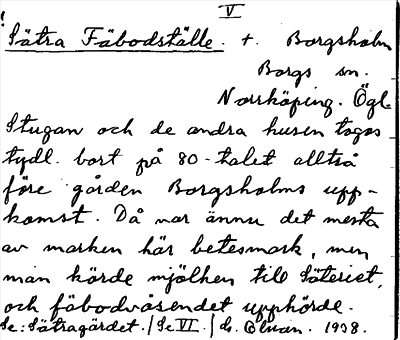 V
Sätra Fäbodställe. t. Borgsholm
Borgs sn.
Norrköping. Ögl.
Stugan och de andra husen togos
tydl. bort på 80-talet alltså
före gården Borgsholms upp-
komst. Då var ännu det mesta
av marken här betesmark, men
man körde mjölken till Säteriet,
och fäbodväsendet upphörde.
Se: Sätragärdet. / Se VI. / G. 1938.